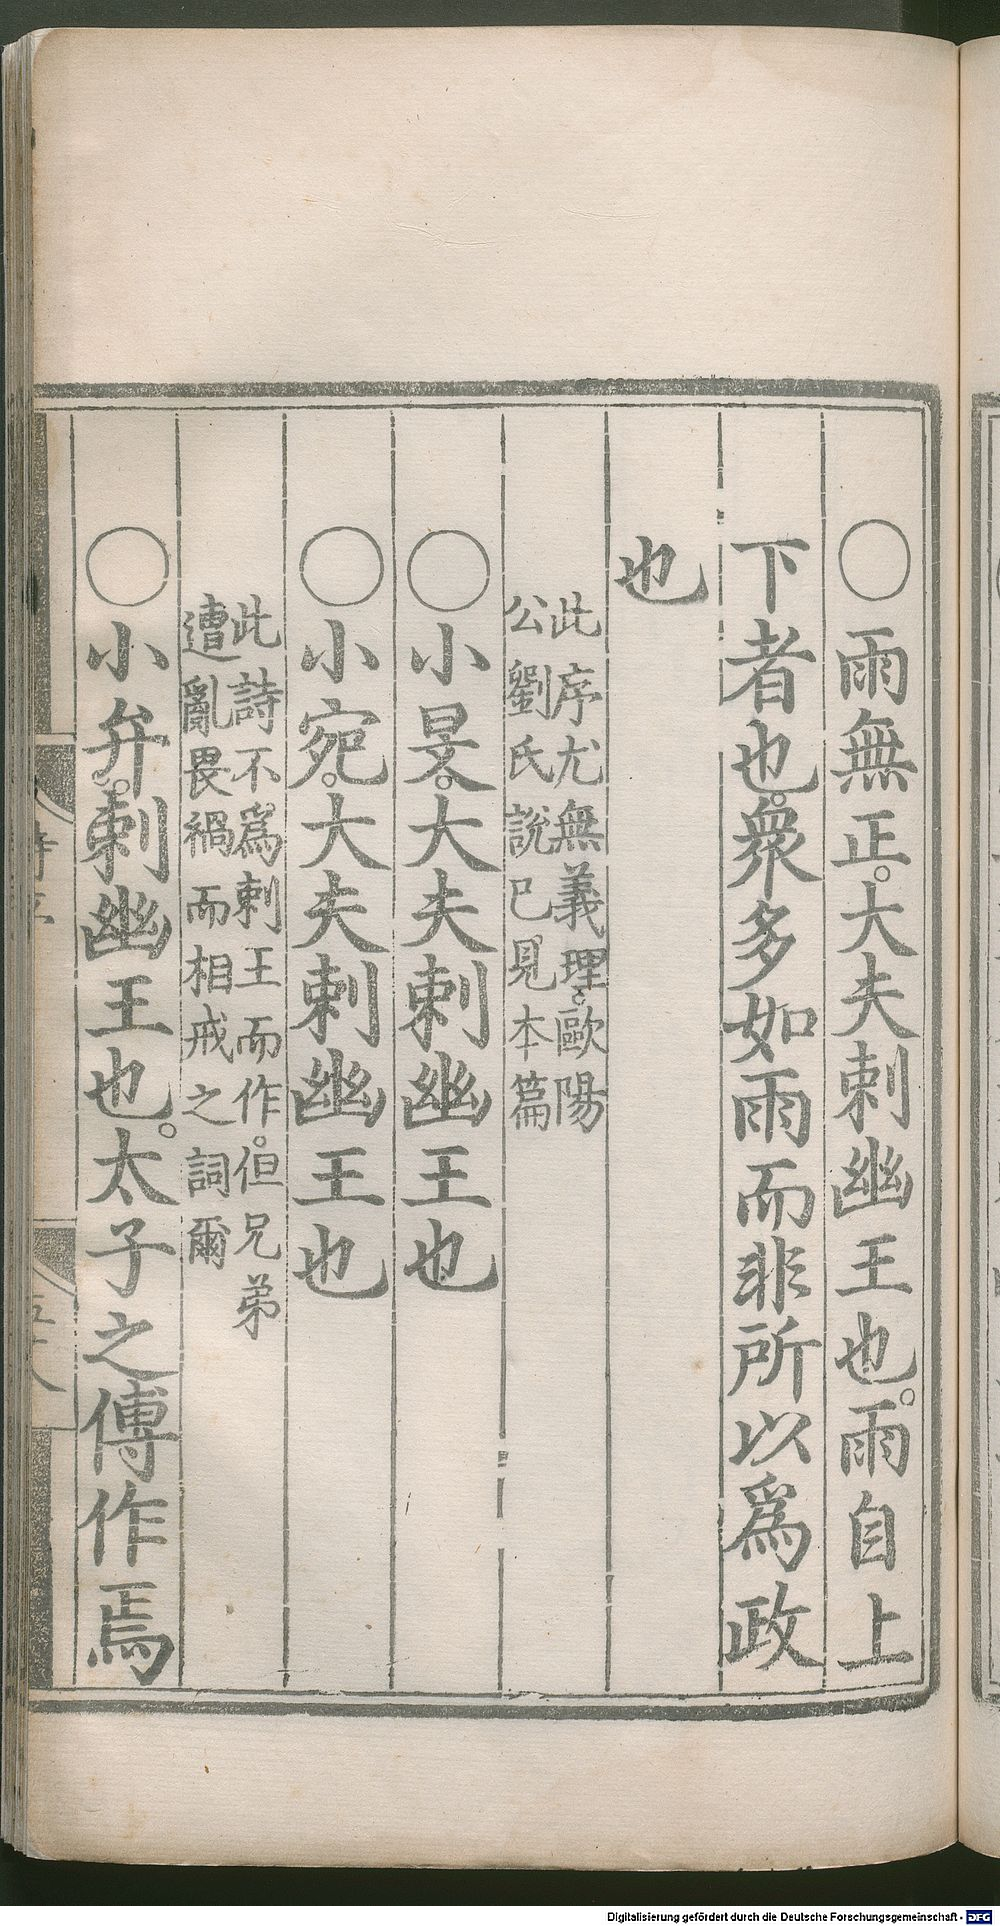 ○雨無正。大夫刺幽王也。雨自上
下者也。衆多如雨而非所以爲政
也
此序尤無義理歐陽
公劉氏說已見本篇
○小旻。大夫刺幽王也
○小宛。大夫刺幽王也
此詩不爲刺王而作。但兄弟
遭亂畏禍而相戒之詞爾
○小弁。刺幽王也。太子之傅作焉
Digitalisierung gefördert durch die Deutsche Forschungsgemeinschaft - DFG